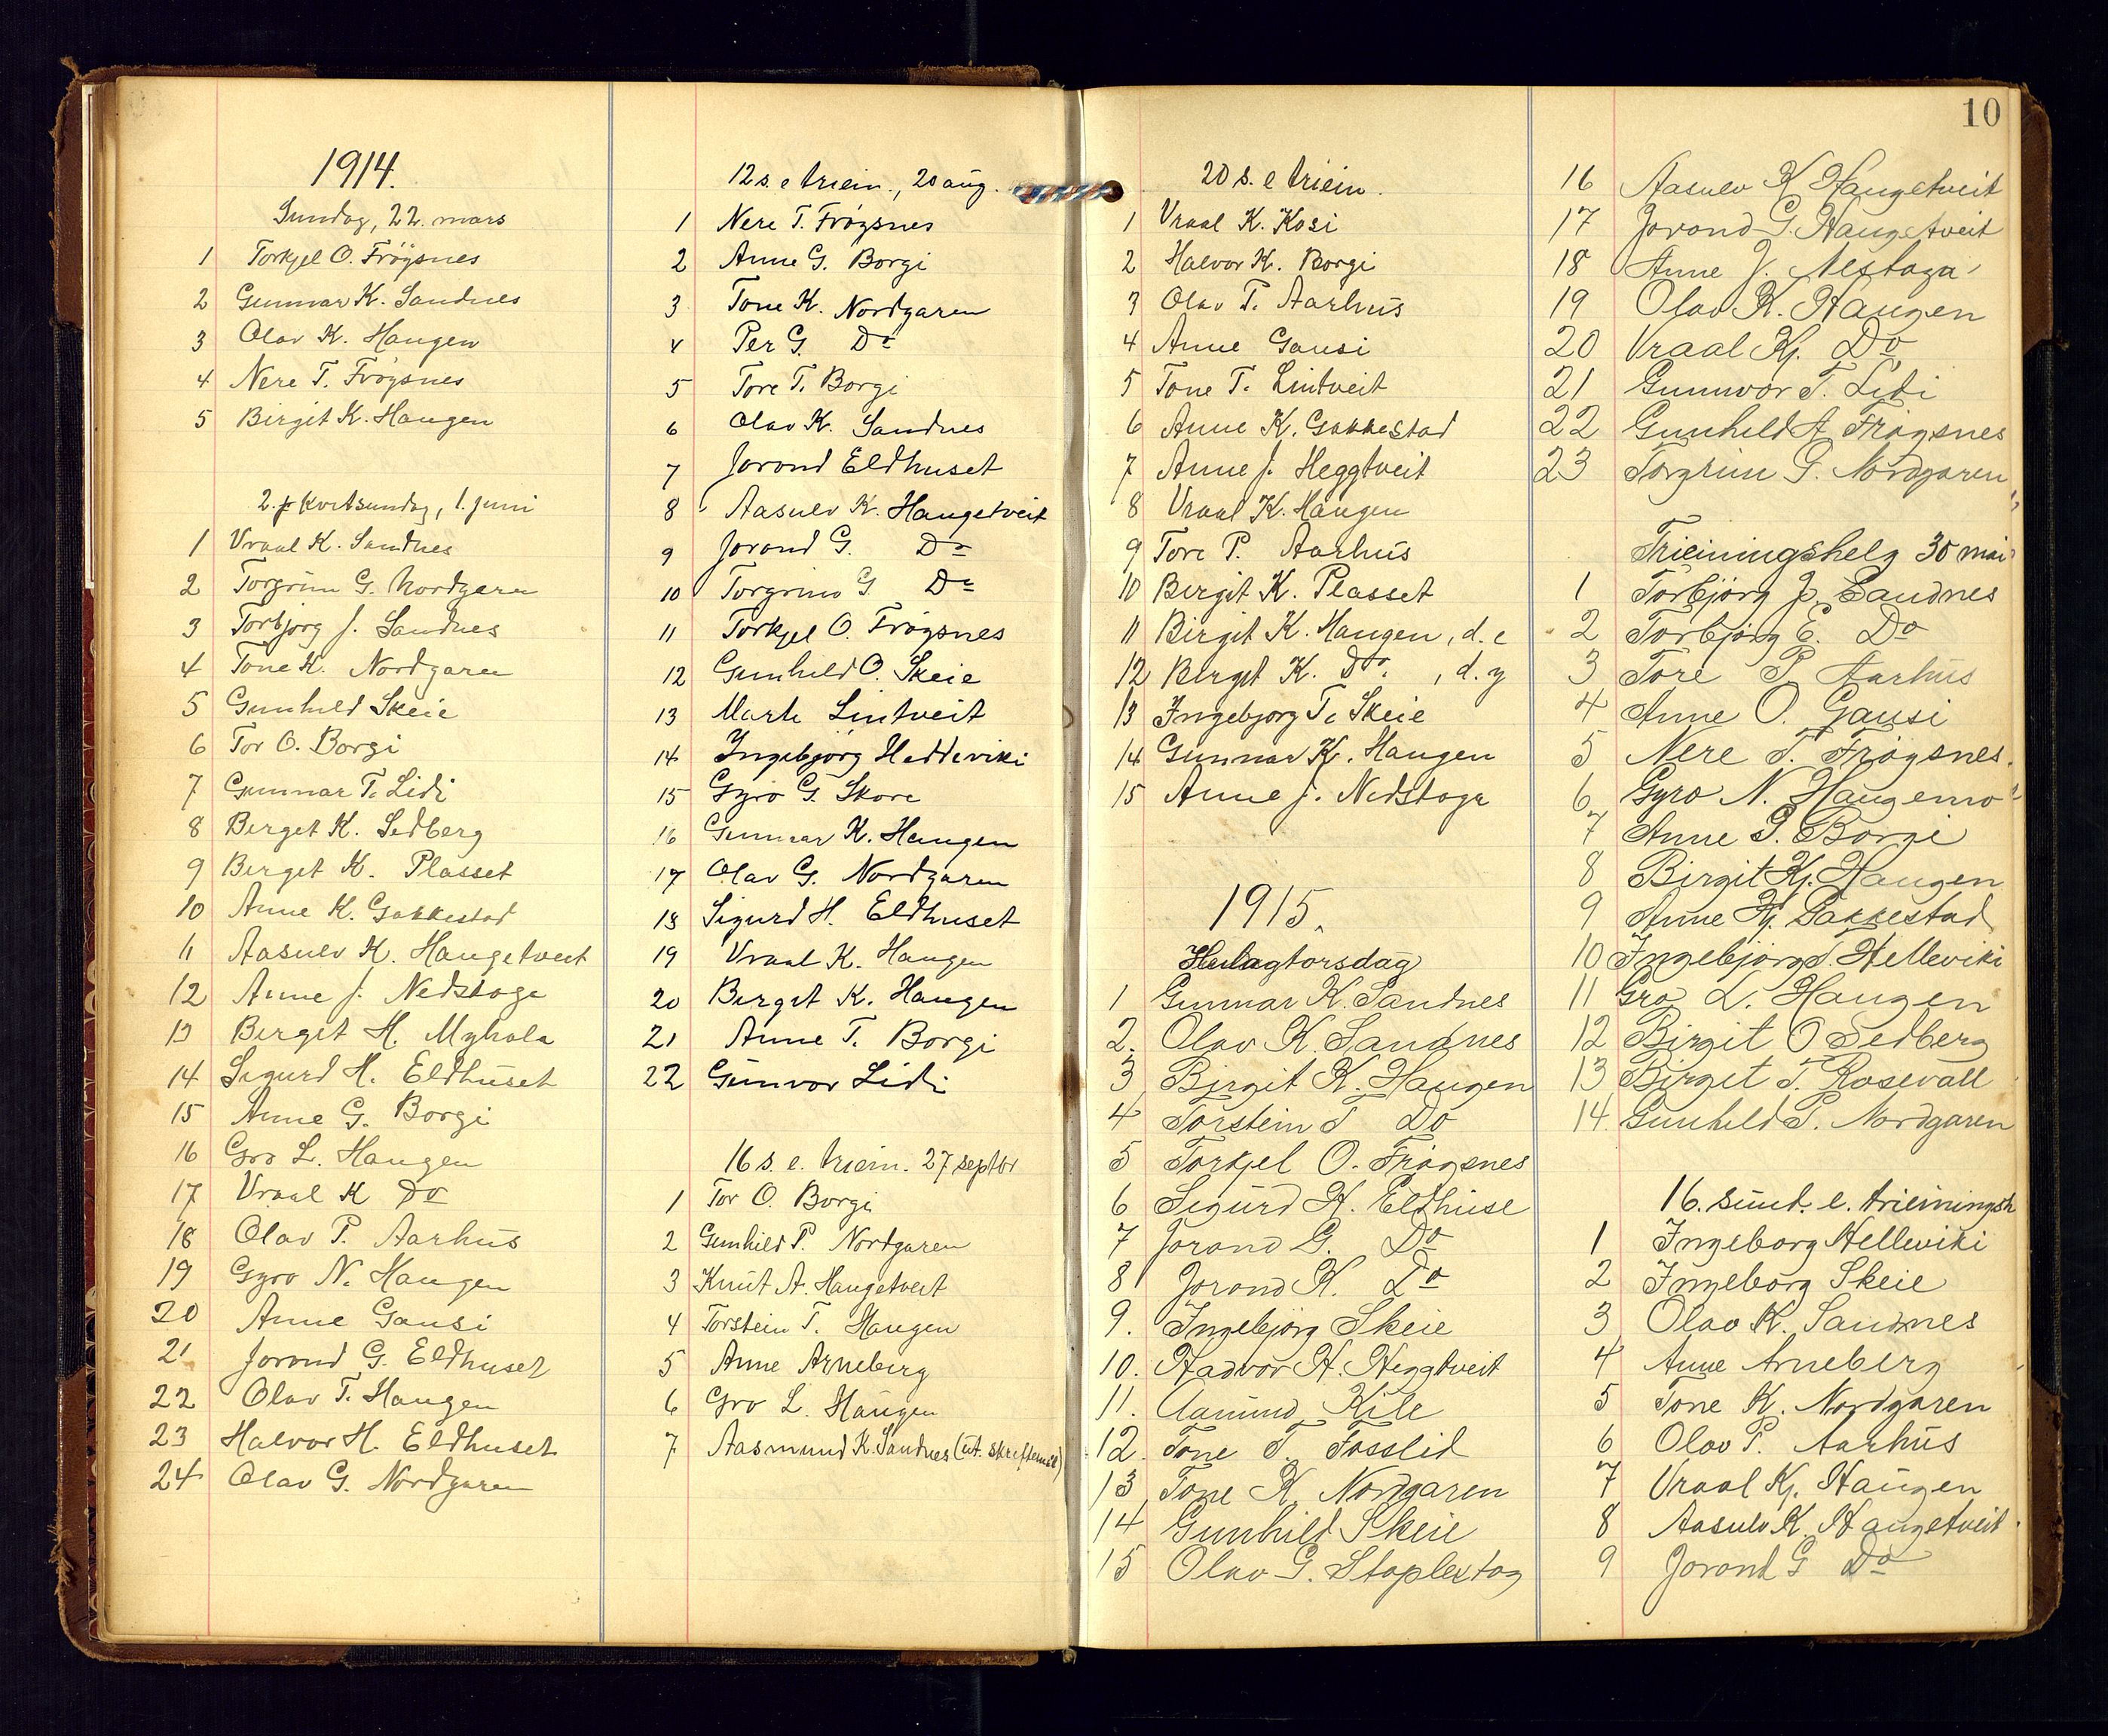 10
1914.
Sundag, 22. mars
1 Torkjel O. Frøysnes
2 Gunnar K. Sandnes
3 Olav K. Haugen
4 Nere T. Frøysnes
5 Birgit K. Haugen
2. Kvitsundag, 1. juni
1 Vraal K. Sandnes
2 Torgrim G. Nordgaren
3 Torbjørg J. Sandnes
4 Tone K. Nordgaren
5 Gunhild Skeie
6 Tor O. Borgi
7 Gunnar T. Lidi
8 Birget K. Sedberg
9 Birget K. Plasset
10 Anne K. Gakkestad
11 Aasulv K. Haugetveit
12 Anne J. Nedstoga
13 Birget H. Myhola
14 Sigurd H. Eldhuset
15 Anne G. Borgi
16 Gro L. Haugen
17 Vraal K Do
18 Olav P. Aarhus
19 Gyro N. Haugen
20 Anne Gausi
21 Jorond G. Eldhuset
22 Olav T. Haugen
23 Halvor H. Eldhuset
24 Olav G. Nordgaren
12 s. e triein., 20 aug.
1 Nere T. Frøysnes
2 Anne G. Borgi
3 Tone K. Nordgaren
4 Per G. Do
5 Tore T. Borgi
6 Olav K. Sandnes
7 Jorond Eldhuset
8 Aasulv K. Haugetveit
9 Jorond G. Do
10 Torgrim G Do
11 Torkjel O. Frøysnes
12 Gunhild O. Skeie
13 Marte Lintveit
14 Ingebjørg Helleviki
15 Gyro G. Skore
16 Gunnar K. Haugen
17 Olav G. Nordgaren
18 Sigurd H. Eldhuset
19 Vraal K. Haugen
20 Birgit K. Haugen
21 Anne T. Borgi
22 Gunvor Lidi
16 s. e. triein. 27 septbr
1 Tor O. Borgi
2 Gunhild P. Nordgaren
3 Knut A. Haugetveit
4 Torstein T. Haugen
5 Anne Arneberg
6 Gro L. Haugen
7 Aasmund K. Sandnes (ut. skriftemål)
20 s. e triein.
1 Vraal K. Kosi
2 Halvor K. Borgi
3 Olav T. Aarhus
4 Anne Gausi
5 Tone T. Lintveit
6 Anne K. Gakkestad
7 Anne J. Heggtveit
8 Vraal K. Haugen
9 Tore P. Aarhus
10 Birgit K. Plasset
11 Birgit K. Haugen, d. e
12 Birgit K. Do. , d. y
13 Ingebjørg T. Skeie
14 Gunnar K. Haugen
15 Anne J. Nedstoga
1915.
Helagtorsdag
1 Gunnar K. Sandnes
2. Olav K. Sandnes
3 Birgit K. Haugen
4 Torstein T Do
5 Torkjel O. Frøysnes
6 Sigurd H. Eldhuse
7 Jorond G. Do
8 Jorond K. Do
9. Ingebjørg Skeie
10. Hadvor H. Heggtveit
11. Aamund Kile
12. Tone T. Fosslid
13 Tone K Nordgaren
14 Gunhild Skeie
15 Olav G. Staplestog
16 Aasulv K Haugetveit
17 Jorond G. Haugetveit
18 Anne J. Nestoga
19 Olav K. Haugen
20 Vraal Kj. Do
21 Gunnvor T. Lidi
22 Gunhild A Frøysnes
23 Torgrim G. Nordgaren
Trieiningshelg 30 mai
1 Torbjørg J. Sandnes
2 Torbjørg E. Do
3 Tore P Aarhus
4 Anne O. Gausi
5 Nere T. Frøysnes.
6 Gyro N. Haugemo
7 Anne G. Borgi
8 Birgit Kj. Haugen
9 Anne Kj. Gakkestad
10 Ingebjørg S. Helleviki
11 Gro L. Haugen
12 Birgit O Sedberg
13 Birget T. Rosevall
14. Gunhild P. Nordgaren
16. sund. e. trieiningsh
1 Ingeborg Helleviki
2 Ingeborg Skeie
3 Olav K. Sandnes
4 Anne Arneberg
5 Tone K. Nordgaren
6 Olav P. Aarhus
7 Vraal Kj. Haugen
8 Aasulv K. Haugetveit.
9 Jorond G Do